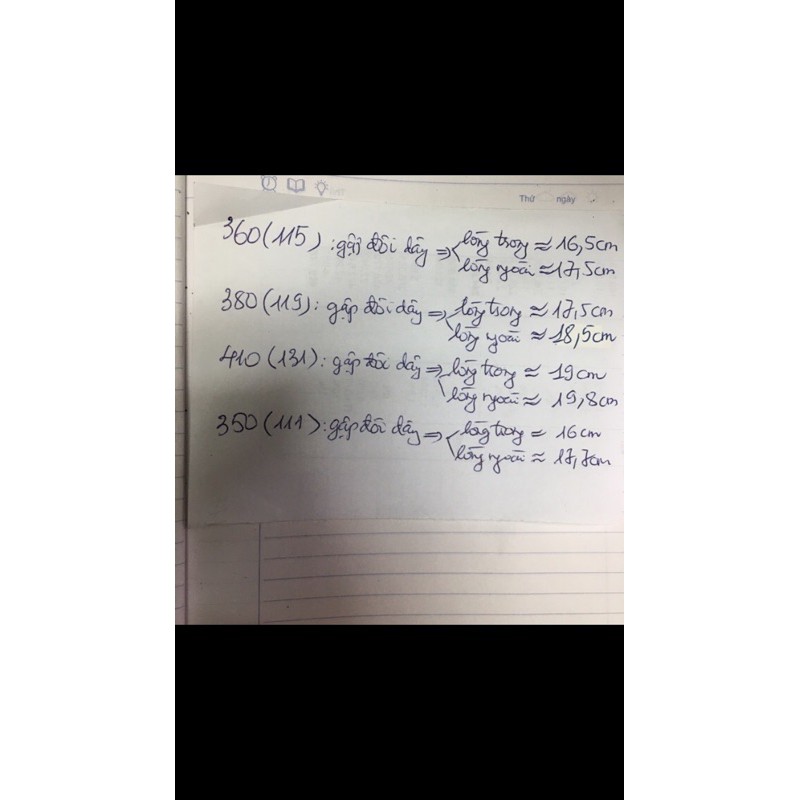 Thứ ngày
360(115): gập đôi dây ⇒ lòng trong ≈ 16,5cm
lòng ngoài ≈ 17,5cm
380(119): gập đôi dây ⇒ lòng trong ≈ 17,5cm
lòng ngoài ≈ 18,5cm
410(131): gập đôi dây ⇒ lòng trong ≈ 19cm
lòng ngoài ≈ 19,8cm
350(111): gập đôi dây ⇒ lòng trong = 16cm
lòng ngoài ≈ 17,7cm